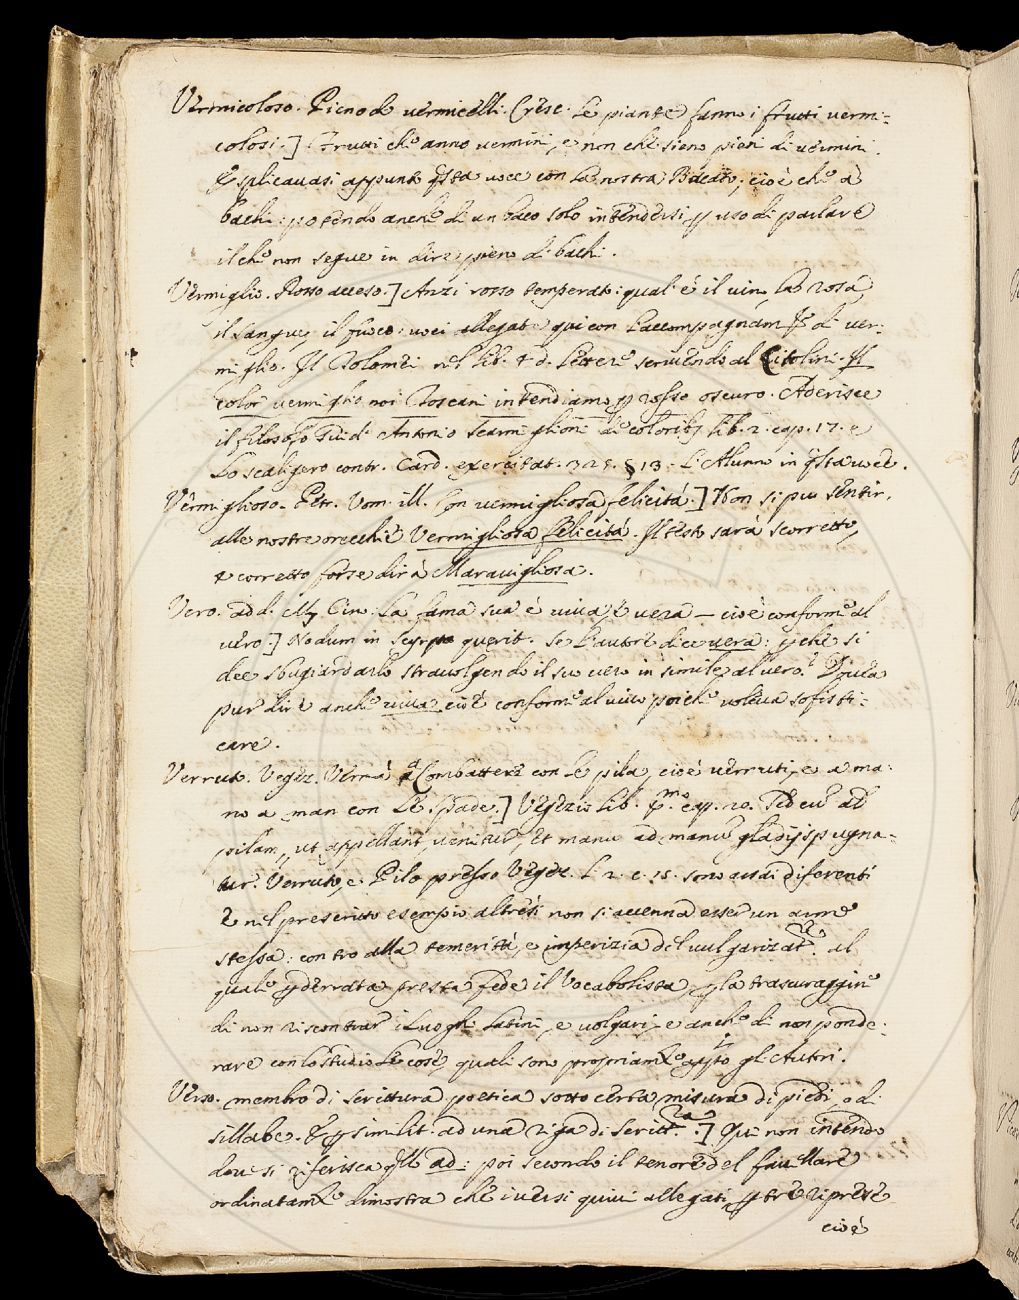 Vermicoloso. Pieno di vermicelli. Cresc. Le piante fanno i frutti vermi=
colosi.] Frutti che anno vermini, e non che sieno pieni di vermini.
Esplicavasi appunto qsta voce con la nostra Bacato; cioè che à
bachi: potendo anche di un baco solo intendersi p uso di parlare
il che non segue in dire pieno di bachi.
Vermiglio. Rosso acceso.] Anzi rosso temperato: qual' è il vino, la rosa,
il sangue, il fuoco: voci allegate qui con l'accompagnam.to di ver=
miglio. Il Tolomei nel lib. 4 d. Lettere scrivendo al Citolini. Il
color vermiglio noi Toscani intendiamo p rosso oscuro. Aderisce
il filosofo Antonio Scarmiglioni de coloribq lib. 2. cap. 17. e
Lo Scaligero contr. Card. exercitat. 325. § 13. L'Alunno in qsta voce.
Vermiglioso. Petr. Uom. ill. In vermigliosa felicità.] Non si può sentir,
alle nostre orecchie Vermigliosa felicità. Il testo sarà scorretto,
e corretto forse dirà Maravigliosa.
Vero. add. M. Cin. La fama sua è viva, è vera — cioè conforme al
vero.] Nodum in scyrpo querit. Se l'autore dice vera: pche si
dee sbugiardarlo stravolgendo il suo vero in simile al vero? Dovea
pur dire anche viva cioè conforme al vivo poiche voleva sofisti=
care.
Verruto. Vegez. Verrà a Combattere con le pila, cioè verruti, e a ma=
no a man con le spade.] Vegezio lib. p.mo cap. 20. Sed cum ad
pilam, ut appellant, venitur, et manu ad manum gladijs pugna=
tur. Verruto, e Pilo presso Vegez. L. 2. c. 15. sono asdi differenti
E nel prescritto esempio altresì non si accenna esser un arme
stessa: contro alla temerità, e imperizia del vulgarizat.re al
quale pderrata presta fede il Vocabolista, p la trascuraggine
di non riscontrar i Luoghi Latini, e volgari, e anche di non ponde=
rare con lo studio le cose, quali sono propriam.te appto gli Autori.
Verso. membro di scrittura poetica sotto certa misura di piedi, o di
sillabe. E p similit. ad una riga di scritt.ra.] Qui non intendo
dove si riferisca qllo ad: poi secondo il tenore del favellare
ordinatam.te dimostra che i versi quivi allegati p tre riprese
cioè